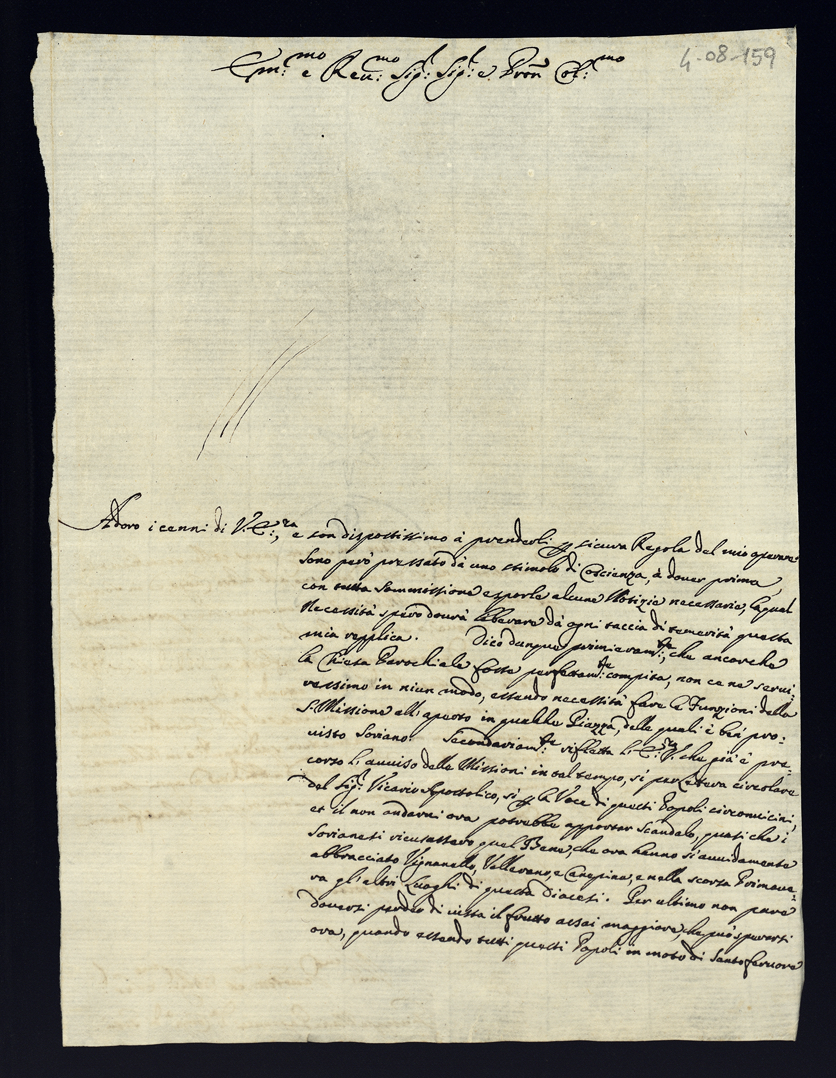 4-08-159
Em:mo e Reu:mo Sig:r Sig:r e Pron Col:mo
Adoro i cenni di V:E:za, e son dispostissimo à prenderli p sicura Regola del mio operare
sono però pressato dà uno stimolo di Coscienza, à dover prima
con tutta sommissione esporle alcune Notizie necessarie, la qual
Necessità spero dourà liberare dà ogni taccia di temerità questa
mia repplica. Dico dunque primieram:te, che ancorche
la Chiesa Parochiale fosse perfettam:te compita, non ce ne servi:
ressimo in niun modo, essendo necessità fare le Funzioni della
S: Missione all'aperto in qualche Piazza, delle quali è ben pro:
visto Soriano. Secondariam:te rifletta l'E:za V:, che già è pre:
corso l'auuiso delle Missioni in tal tempo, sì per lettera circolare
del Sig:r Vicario Apostolico, sì p la Voce di questi Popoli circonuicini,
et il non andarui ora potrebbe apportar Scandalo, quasi che i
Sorianesi ricusassero quel Bene, che ora hanno sì auuidamente
abbracciato Vignanello, Vallerano, e Canepina, e nella scorsa Primaue:
ra gli altri Luoghi di questa Diocesi. Per ultimo non pare
douersi perder di uista il frutto assai maggiore, che può sperarsi
ora, quando essendo tutti questi Popoli in moto di Santo feruore